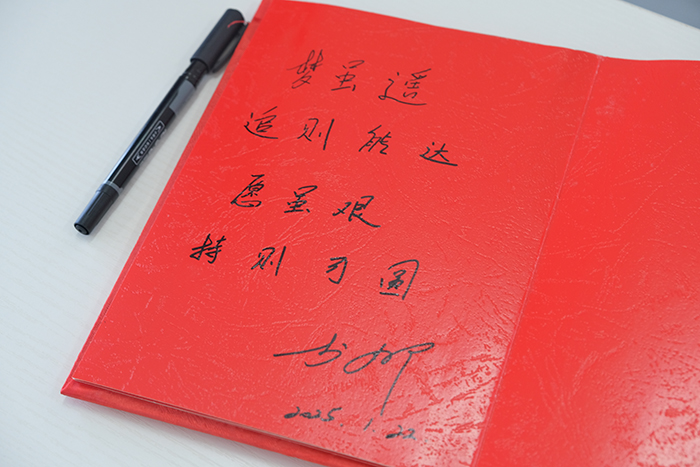 梦虽遥
追则能达
愿虽艰
持则可圆
2025.1.22.